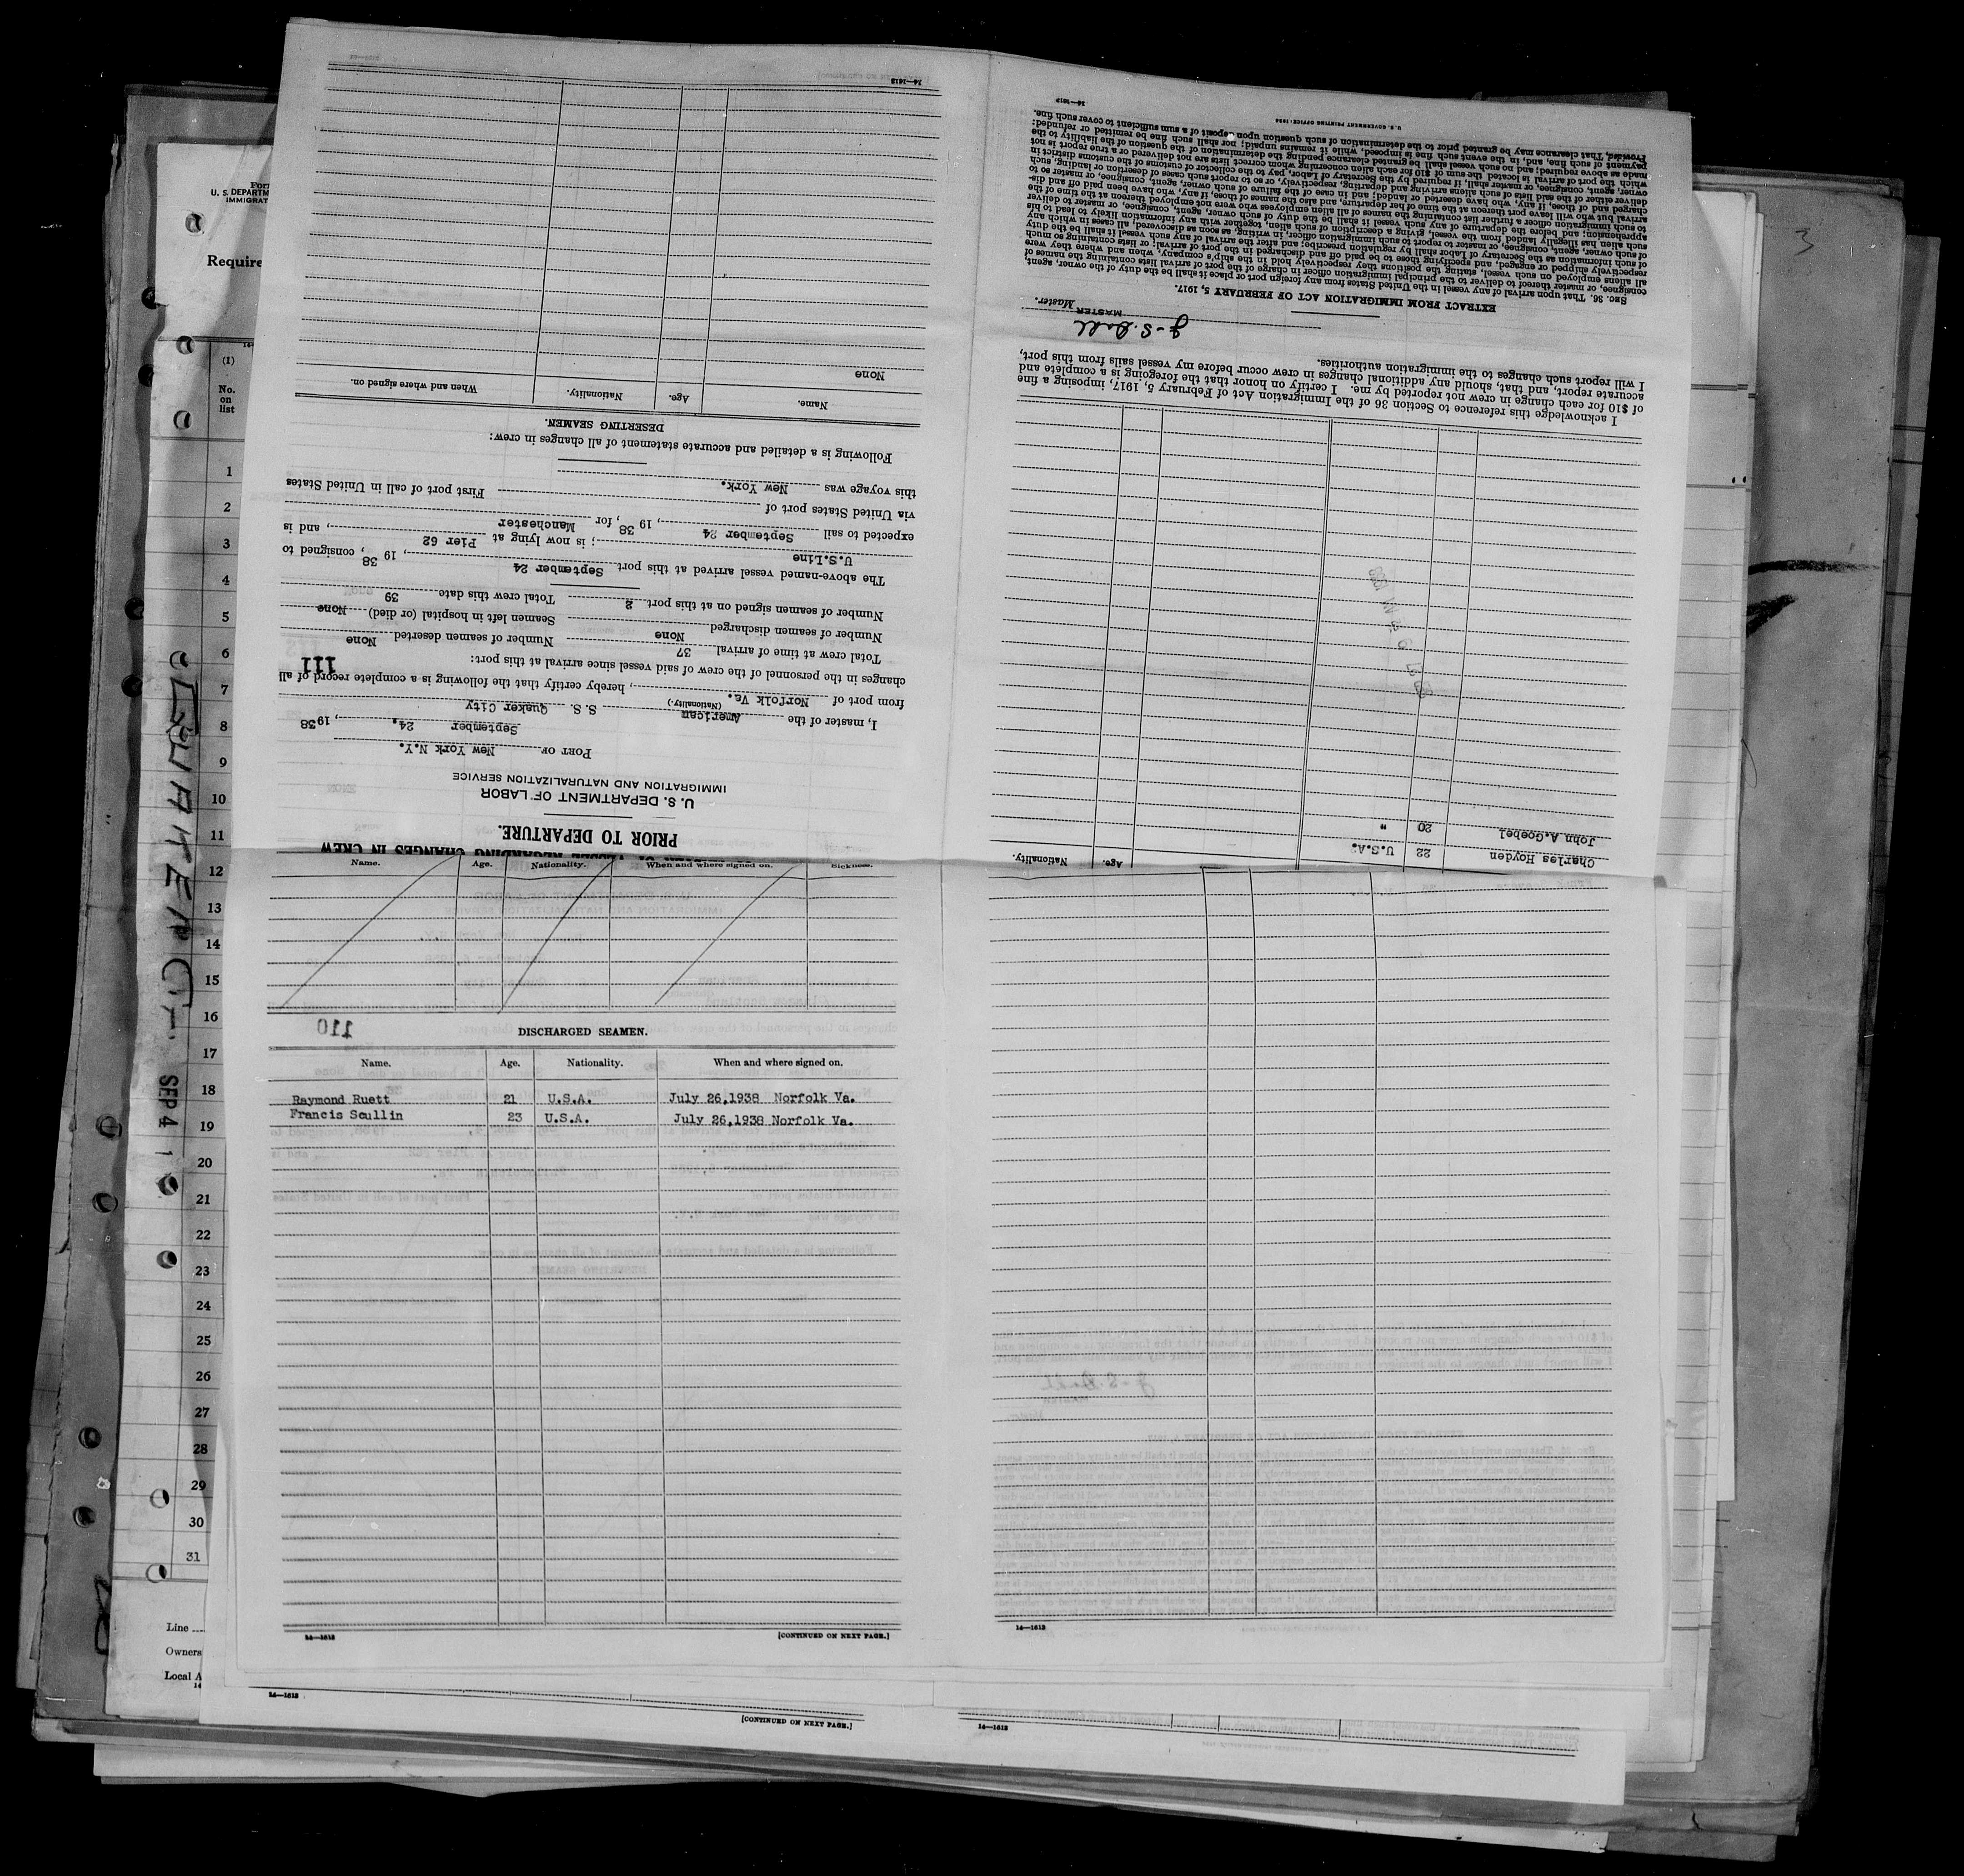 PRIOR TO DEPARTURE.
U. S. DEPARTMENT OF LABOR
IMMIGRATION AND NATURALIZATION SERVICE
PORT OF New York N.Y.
September 24, 1938
I, master of the American S. S. Quaker City
(Nationality.)
from port of Norfolk Va., hereby certify that the following is a complete record of all
changes in the personnel of the crew of said vessel since arrival at this port:
111
Total crew at time of arrival 37 Number of seamen deserted None
Number of seamen discharged None Seamen left in hospital (or died) None
Number of seamen signed on at this port 2 Total crew this date 39
The above-named vessel arrived at this port September 24, 19 38, consigned to
U.S.Line; is now lying at Pier 62, and is
expected to sail September 24, 19 38, for Manchester
via United States port of
First port of call in United States
this voyage was New York.
Following is a detailed and accurate statement of all changes in crew:
DESERTING SEAMEN.
Name. Age. Nationality. When and where signed on.
None
16—1613
Nationality. Age.
Charles Hoyden 22 U.S.A.
John A.Goebel 20 "
I acknowledge this reference to Section 36 of the Immigration Act of February 5, 1917, imposing a fine
of $10 for each change in crew not reported by me. I certify on honor that the foregoing is a complete and
accurate report, and that, should any additional changes in crew occur before my vessel sails from this port,
I will report such changes to the immigration authorities.
MASTER Master.
EXTRACT FROM IMMIGRATION ACT OF FEBRUARY 5, 1917.
SEC. 36. That upon arrival of any vessel in the United States from any foreign port or place it shall be the duty of the owner, agent,
consignee, or master thereof to deliver to the principal immigration officer in charge of the port of arrival lists containing the names of
all aliens employed on such vessel, stating the positions they respectively hold in the ship's company, when and where they were
respectively shipped or engaged, and specifying those to be paid off and discharged in the port of arrival; or lists containing so much
of such information as the Secretary of Labor shall by regulation prescribe; and after the arrival of any such vessel it shall be the duty
of such owner, agent, consignee, or master to report to such immigration officer, in writing, as soon as discovered, all cases in which any
such alien has illegally landed from the vessel, giving a description of such alien, together with any information likely to lead to his
apprehension; and before the departure of any such vessel it shall be the duty of such owner, agent, consignee, or master to deliver
to such immigration officer a further list containing the names of all alien employees who were not employed thereon at the time of the
arrival but who will leave port thereon at the time of her departure, and also the names of those, if any, who have been paid off and dis-
charged and of those, if any, who have deserted or landed; and in case of the failure of such owner, agent, consignee, or master so to
deliver either of the said lists of such aliens arriving and departing, respectively, or so to report such cases of desertion or landing, such
owner, agent, consignee, or master shall, if required by the Secretary of Labor, pay to the collector of customs of the customs district in
which the port of arrival is located the sum of $10 for each alien concerning whom correct lists are not delivered or a true report is not
made as above required; and no such vessel shall be granted clearance pending the determination of the question of the liability to the
payment of such fine, and, in the event such fine is imposed, while it remains unpaid; nor shall such fine be remitted or refunded:
Provided, That clearance may be granted prior to the determination of such question upon deposit of a sum sufficient to cover such fine.
U. S. GOVERNMENT PRINTING OFFICE
16—1613
Name. Age. Nationality. When and where signed on. Sickness.
110
DISCHARGED SEAMEN.
Name. Age. Nationality. When and where signed on.
Raymond Ruett 21 U.S.A. July 26,1938 Norfolk Va.
Francis Scullin 23 U.S.A. July 26,1938 Norfolk Va.
14—1613
[CONTINUED ON NEXT PAGE.]
14—1613
14—1613
[CONTINUED ON NEXT PAGE.]
14—1613
U. S. DEPARTM
IMMIGRAT
Require
(1)
No.
on
list
1
2
3
4
5
6
7
8
9
10
11
12
13
14
15
16
17
18
19
20
21
22
23
24
25
26
27
28
29
30
31
Line
Owners
Local A
SEP 4 1
3